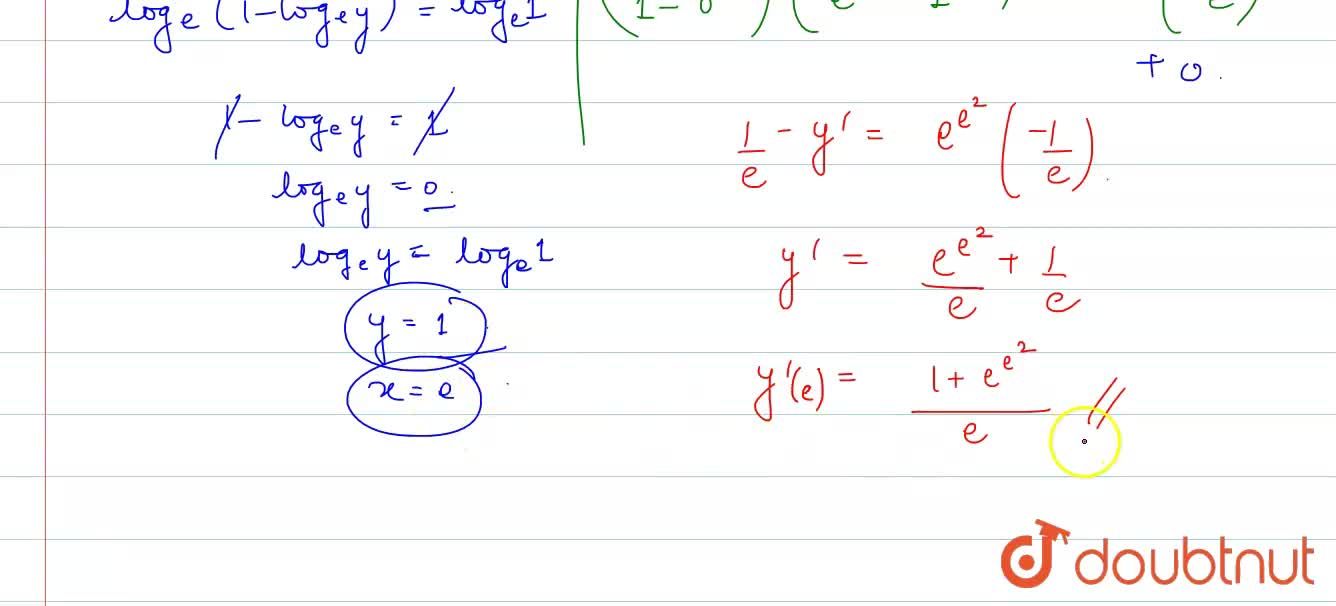 log_e (1 - log_e y) = log_e 1
1 - log_e y = 1
log_e y = 0.
log_e y = log_e 1
y = 1
x = e
+ 0.
1/e - y' = e^{e^2} (-1/e).
y' = e^{e^2}/e + 1/e
y'(e) = (1 + e^{e^2})/e //
doubtnut